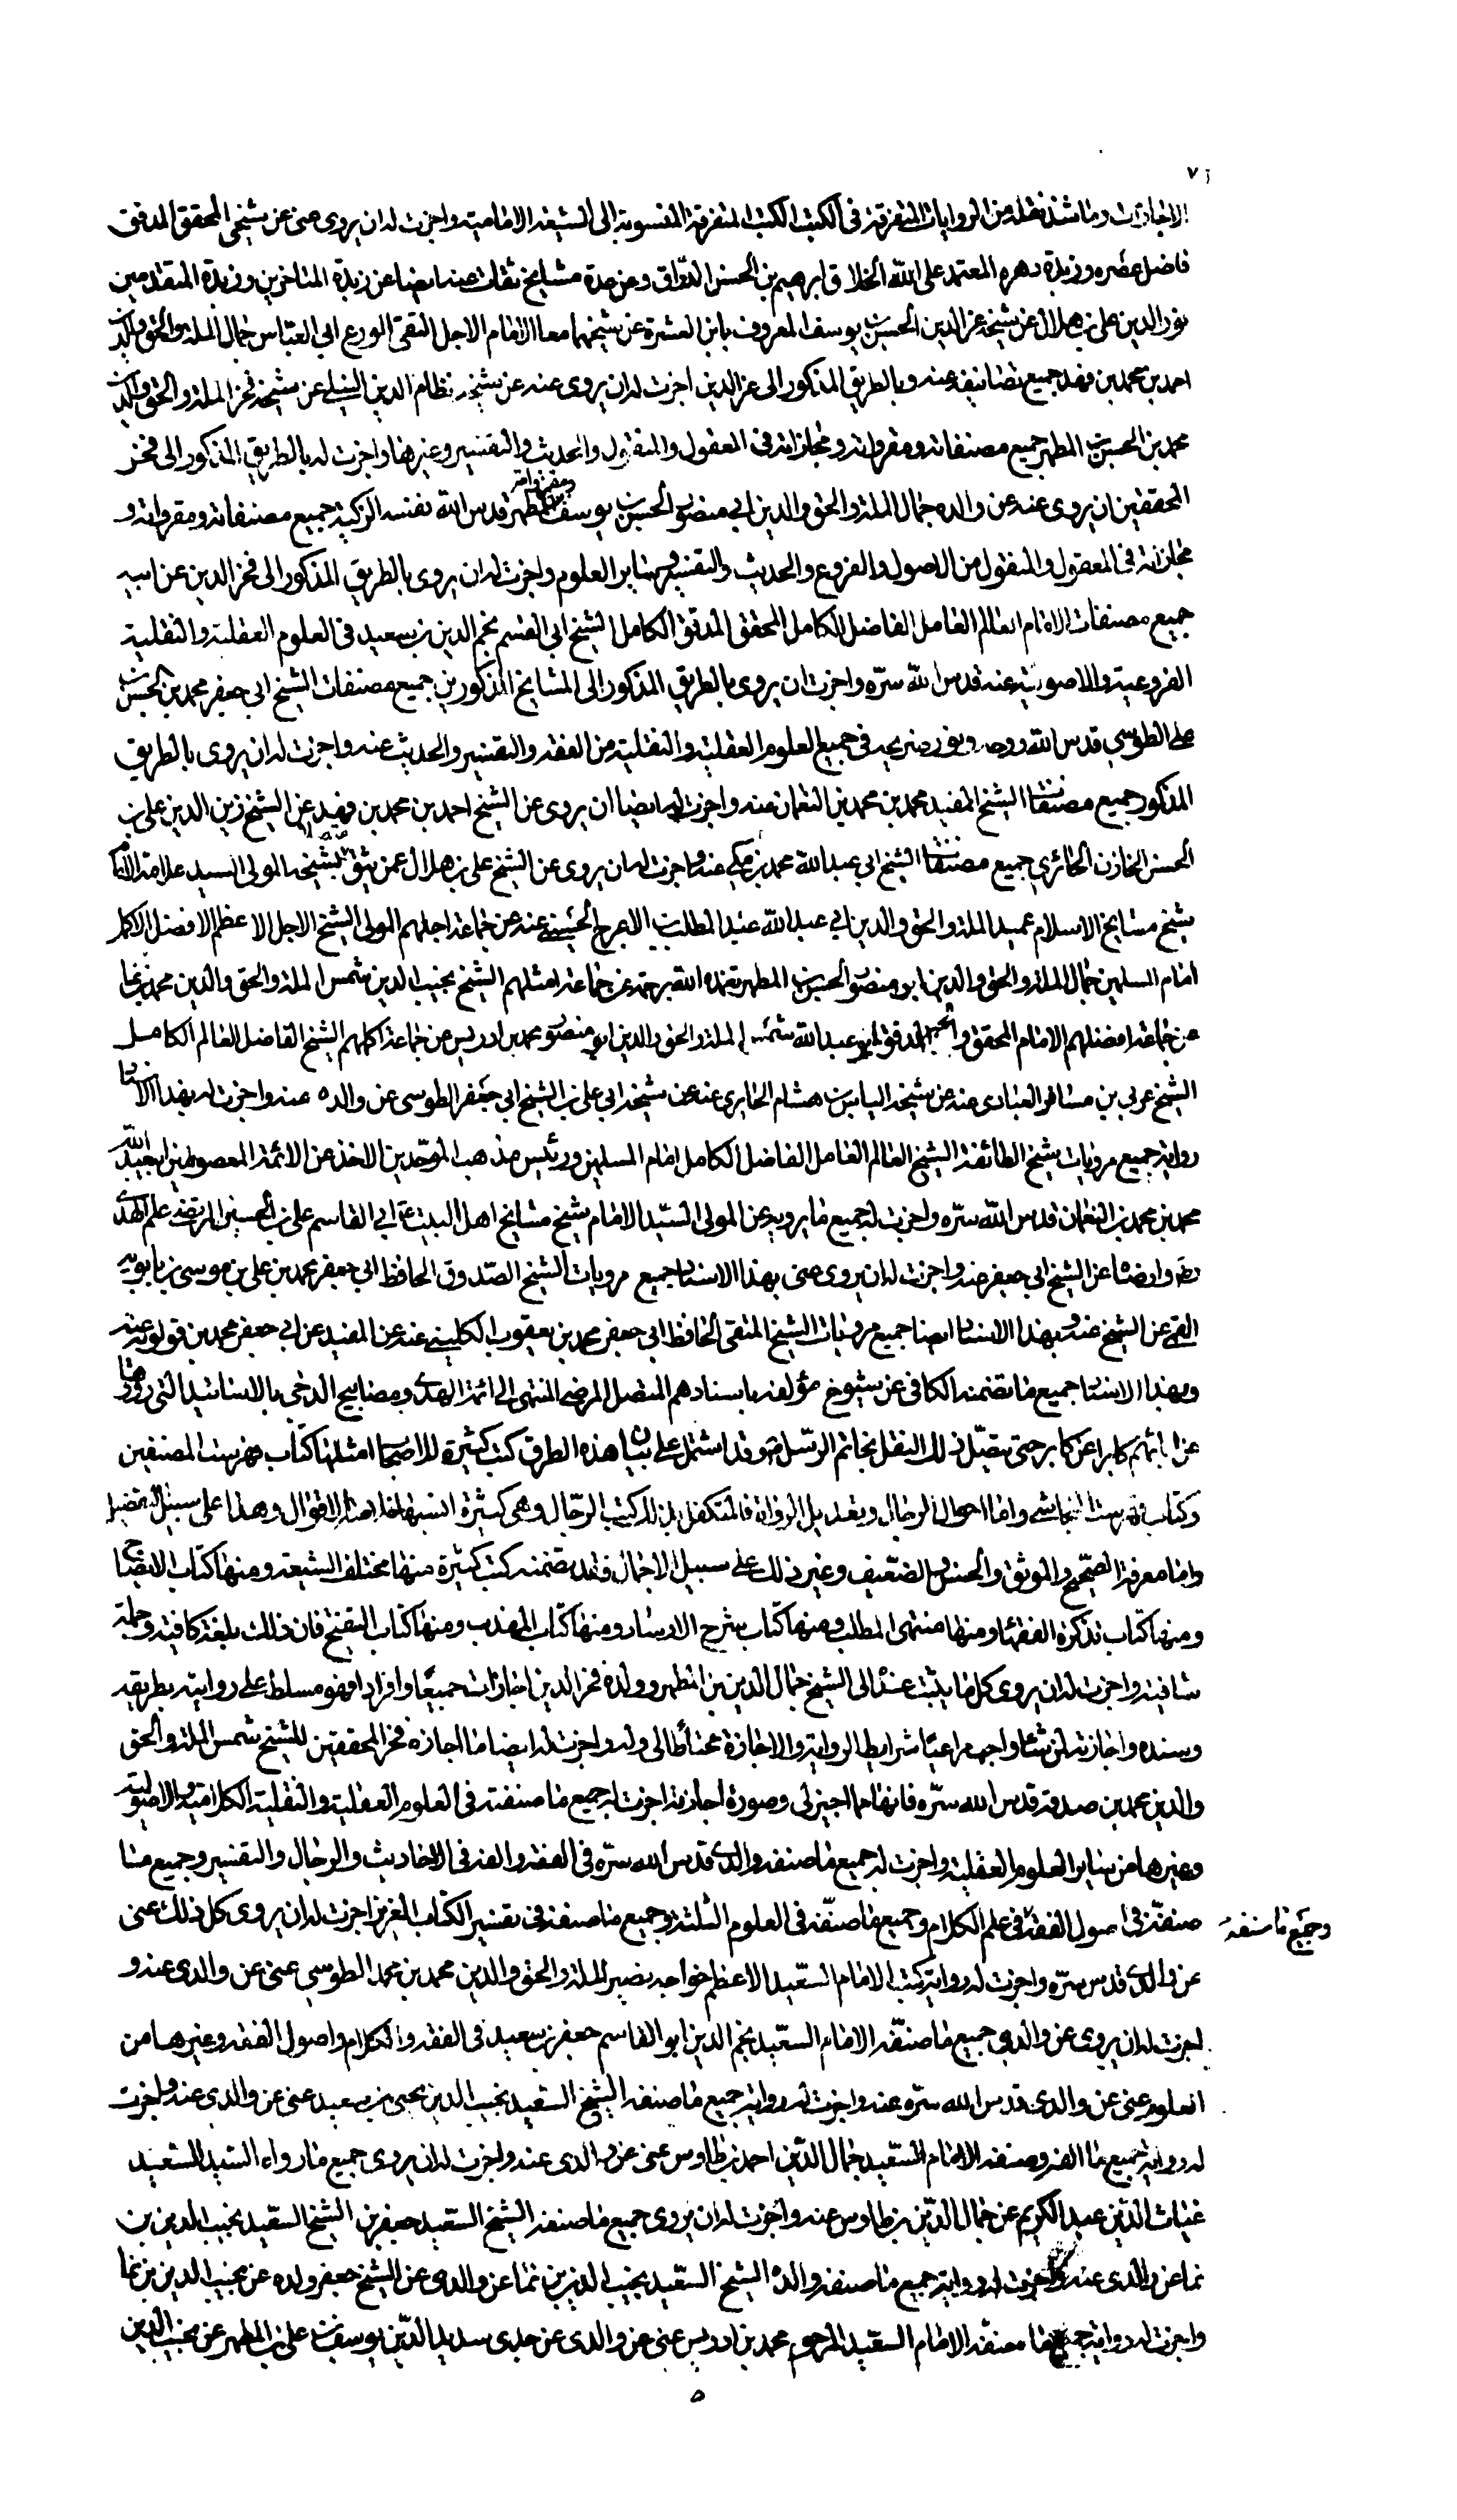 الاخبارات وما شذ نقله من الروايات المتفرقة في الكتب الكتب المتفرقة المنسوبة الى الشيعة الامامية واجزت له ان يروى عنى عن شيخى المحقق المدقق
فاضل عصره وزبدة دهره المعتمد على الله الخلاق ابرهيم بن الحسن الدراق وعن عدة مشايخ ثقات عنه ايضا عن زبدة المتاخرين وزبدة المتقدمين
نور الدين على بن هلال عن شيخه عز الدين الحسن بن يوسف المعروف بابن العشرة عن شيخهما معا الامام الاجل التقى الورع ابى العباس جمال الملة والحق والدين
احمد بن محمد بن فهد جميع تصانيفه عنه وبالطريق المذكور الى عز الدين اجزت له ان يروى عنه عن شيخه نظام الدين النيلى عن شيخه فخر الملة والحق والدين
محمد بن الحسن بن المطهر جميع مصنفاته ومقرواته ومجازاته فى المعقول والمنقول والحديث والتفسير وغيرها واجزت له بالطريق المذكور الى فخر
المحققين ان يروى عنه عن والده جمال الملة والحق والدين ابى منصور الحسن بن يوسف المطهر قدس الله نفسه الزكية جميع مصنفاته ومقرواته و
مجازاته فى المعقول والمنقول من الاصول والفروع والحديث والتفسير وساير العلوم واجزت له ان يروى بالطريق المذكور الى فخر الدين عن ابيه
جميع مصنفات الامام العالم العامل الفاضل الكامل المحقق المدقق الكامل الشيخ ابى القسم نجم الدين بن سعيد فى العلوم العقلية والنقلية
الفروعية والاصولية عنه قدس الله سره واجزت ان يروى بالطريق المذكور الى المشايخ المذكورين جميع مصنفات الشيخ ابى جعفر محمد بن الحسن بن
على الطوسى قدس الله روحه ونور ضريحه فى جميع العلوم العقلية والنقلية من الفقه والتفسير والحديث عنه واجزت له ان يروى بالطريق
المذكور جميع مصنفات الشيخ المفيد محمد بن محمد بن النعمان عنه واجزت له ايضا ان يروى عن الشيخ احمد بن محمد بن فهد عن الشيخ زين الدين على بن
الحسن الخازن الحائرى جميع مصنفات الشيخ ابى عبد الله محمد بن مكى عنه واجزت له ان يروى عن الشيخ على بن هلال عمن يثق بشيخه المولى السيد علامة الانام
شيخ مشايخ الاسلام عميد الملة والحق والدين ابى عبد الله عبد المطلب بن الاعرج الحسينى عنه عن جماعة اجلهم المولى الشيخ الاجل الاعظم الافضل الاكمل
امام المسلمين جمال الملة والحق والدين ابو منصور الحسن بن المطهر تغمده الله برحمته عن جماعة امثلهم الشيخ نجيب الدين شمس الملة والحق والدين محمد بن نما
عن جماعة افضلهم الامام المحقق و المدقق ابو عبد الله شمس الملة والحق والدين ابو منصور محمد بن ادريس عن جماعة اكملهم الشيخ الفاضل العالم الكامل
الشيخ عربى بن مسافر العبادى عنه عن شيخه الياس بن هشام الحايرى عنه عن شيخه ابى على بن الشيخ ابى جعفر الطوسى عن والده عنه واجزت له بهذا الاسناد
رواية جميع مرويات شيخ الطائفة الشيخ العالم العامل الفاضل الكامل امام المسلمين ورئيس مذهب الموحدين الاخذ عن الائمة المعصومين ابى عبد الله
محمد بن محمد بن النعمان قدس الله سره واجزت له جميع ما يرويه عن المولى السيد الامام شيخ مشايخ اهل البيت ع ابى القاسم على بن الحسين المرتضى علم الهدى
وايضا عن الشيخ ابى جعفر عنه واجزت له ان يروى عنى بهذا الاسناد جميع مرويات الشيخ الصدوق الحافظ ابى جعفر محمد بن على بن موسى بن بابويه
القمى عن الشيخ عنه وبهذا الاسناد ايضا جميع مرويات الشيخ المتقى الحافظ ابى جعفر محمد بن يعقوب الكلينى عنه عن المفيد عن ابى جعفر محمد بن قولويه عنه
وبهذا الاسناد جميع ما تضمنه الكافى عن شيوخ مؤلفه باسنادهم المتصل المرضى المنتهى الى ائمة الهدى ومصابيح الدجى بالاسانيد التى رووها
عن ابائهم كابرا عن كابر حتى يتصل ذلك النقل بخاتم الرسل ص وقد اشتمل على بيان هذه الطرق كتب كثيرة للاصحاب امثلها كتاب فهرست المصنفين
وكتاب فهرست النجاشى واما احوال الرجال وتعديل الرواة فالمتكفل بذلك كتب الرجال وهى كثيرة الاقوال وهذا على سبيل التفصيل
واما معرفة الصحيح والموثق والحسن والضعيف وغير ذلك على سبيل الاجمال فقد تضمنه كتب كثيرة منها مختلف الشيعة ومنها كتاب الايضاح
ومنها كتاب تذكرة الفقهاء ومنها منتهى المطلب ومنها كتاب شرح الارشاد ومنها كتاب المهذب ومنها كتاب التنقيح فان ذلك بلغة كافية وجملة
شافية واجزت له ان يروى كل ما يثبت عنده الى الشيخ جمال الدين بن المطهر وولده فخر الدين اجازات جميعا وافرادا فهو مسلط على روايته بطريقه
وسنده واجازته لمن شاء واجب مراعيا شرايط الرواية والاجازة محتاطا لى وله واجزت له ايضا ما اجازه فخر المحققين للشيخ شمس الملة والحق
والدين محمد بن صدقة قدس الله سره فانها مما اجيز لى وصورة اجازته اجزت له جميع ما صنفته فى العلوم العقلية والنقلية الكلامية والاصولية
وغيرها من ساير العلوم العقلية واجزت له جميع ما صنفه والدى قدس الله سره فى الفقه والفه فى الاحاديث والرجال والتفسير وجميع ما
صنفه فى اصول الفقه فى علم الكلام وجميع ما صنفه فى العلوم الثلثة وجميع ما صنفه فى تفسير الكتاب العزيز اجزت له ان يروى كل ذلك عنى
وجميع ما صنفه
عن والدى قدس سره واجزت له رواية كتب الامام السعيد الاعظم خواجه نصير الملة والحق والدين محمد بن محمد الطوسى عنى عن والدى عنه و
اجزت له ان يروى عن والدى جميع ما صنفه الامام السعيد نجم الدين ابو القاسم جعفر بن سعيد فى الفقه والكلام واصول الفقه وغيرها من
العلوم عنى عن والدى قدس الله سره عنه واجزت له رواية جميع ما صنفه الشيخ السعيد نجيب الدين يحيى بن سعيد عنى عن والدى عنه واجزت
له رواية جميع ما الفه وصنفه الامام السعيد جمال الدين احمد بن طاوس عنى عن والدى عنه واجزت له ان يروى جميع ما رواه السيد السعيد
غياث الدين عبد الكريم عن جمال الدين بن طاوس عنه واجزت له ان يروى جميع ما صنفه الشيخ السعيد جعفر بن الشيخ السعيد نجيب الدين بن
نما عن والدى عنه واجزت له رواية جميع ما صنفه والده الشيخ السعيد نجيب الدين بن نما عن والدى عن الشيخ جعفر ولده عن نجيب الدين بن نما
واجزت له رواية جميع ما صنفه الامام السعيد المرحوم محمد بن ادريس عنى عن والدى عن جدى سديد الدين يوسف بن على بن المطهر عن نجيب الدين